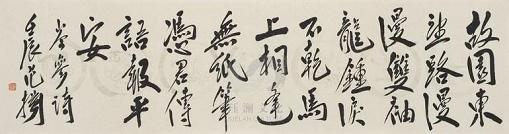 故園東
望路漫
漫雙袖
龍鍾淚
不乾馬
上相逢
無紙筆
憑君傳
語報平
安
岑參詩
壬辰范擴